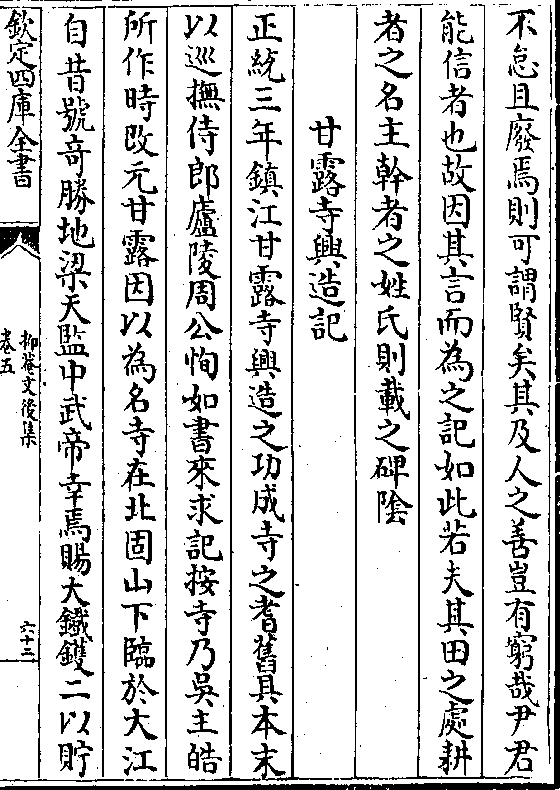 不怠且廢焉則可謂賢矣其及人之善豈有窮哉尹君
能信者也故因其言而為之記如此若夫其田之處耕
者之名主幹者之姓氏則載之碑隂
甘露寺興造記
正統三年鎮江甘露寺興造之功成寺之耆舊具本末
以巡撫侍郎廬陵周公恂如書來求記按寺乃吳主皓
所作時改元甘露因以為名寺在北固山下臨於大江
自昔號竒勝地梁天監中武帝幸焉賜大鐵鑊二以貯
欽定四庫全書
抑菴文後集
卷五
六十二